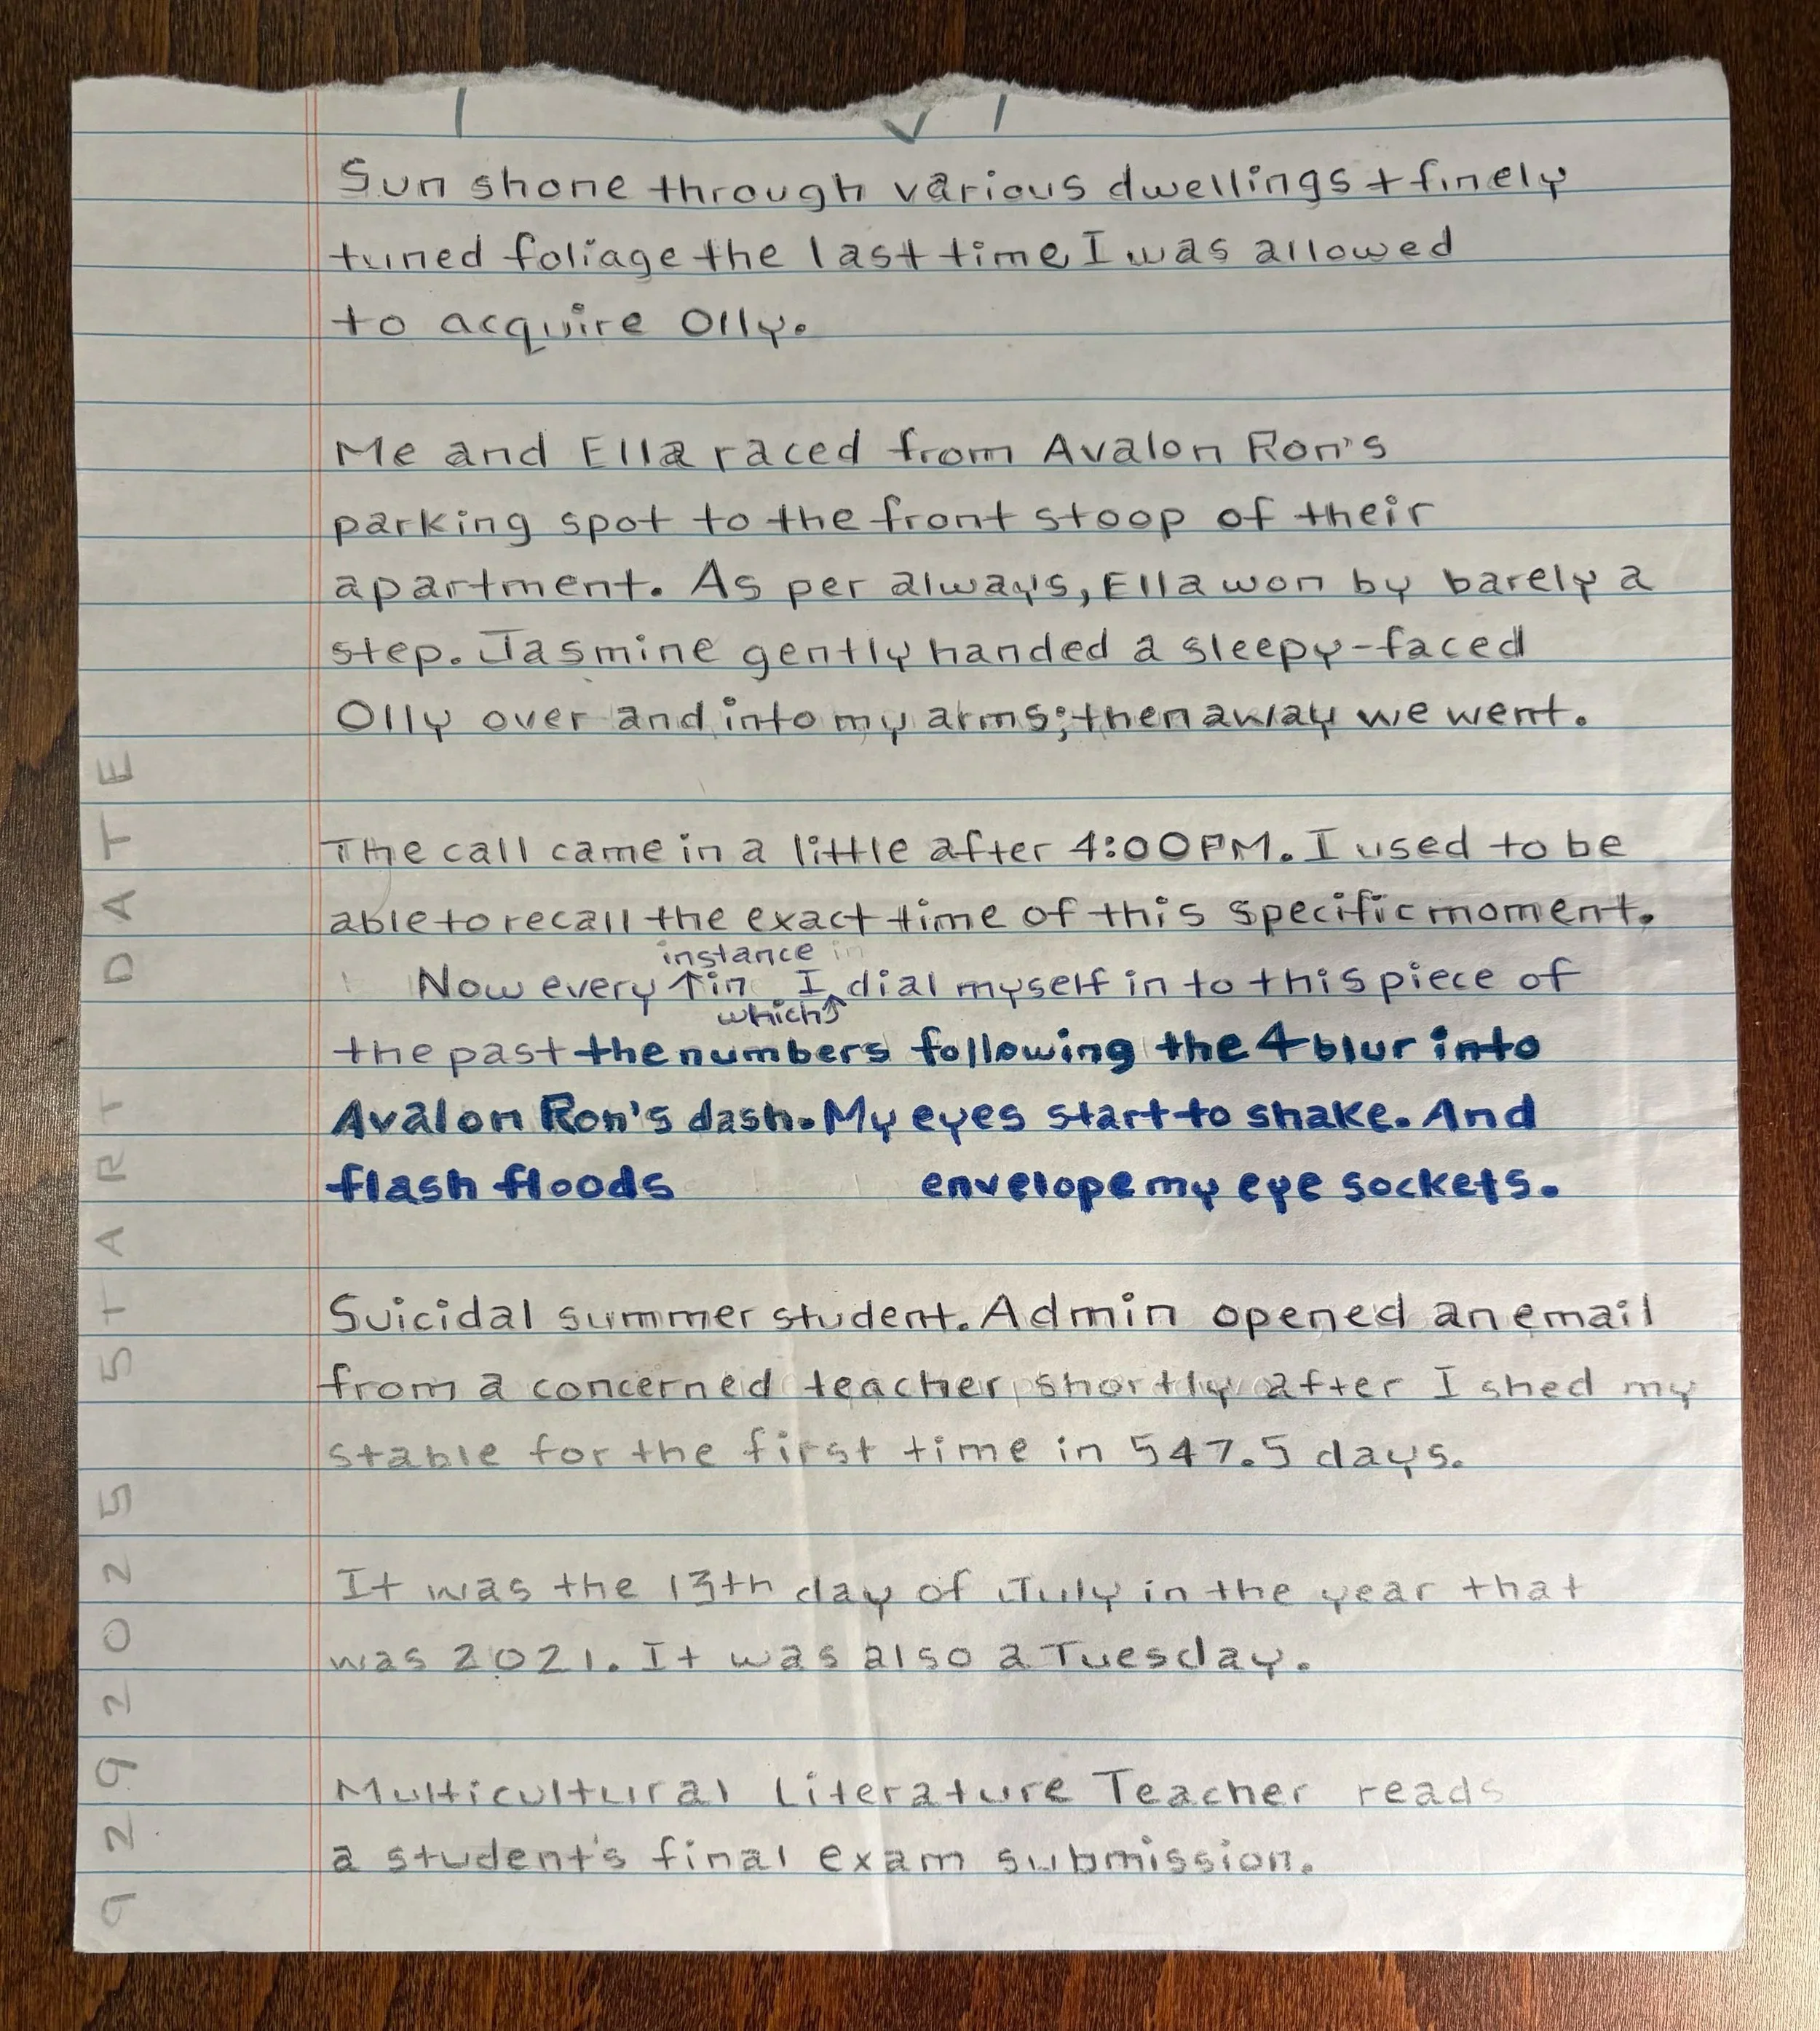 Sun shone through various dwellings + finely
tuned foliage the last time I was allowed
to acquire Olly.
Me and Ella raced from Avalon Ron's
parking spot to the front stoop of their
apartment. As per always, Ella won by barely a
step. Jasmine gently handed a sleepy-faced
Olly over and into my arms; then away we went.
The call came in a little after 4:00PM. I used to be
able to recall the exact time of this specific moment.
instance in
Now every ↑ in I dial myself in to this piece of
which↑
the past the numbers following the 4 blur into
Avalon Ron's dash. My eyes start to shake. And
flash floods envelope my eye sockets.
Suicidal summer student. Admin opened an email
from a concerned teacher shortly after I shed my
stable for the first time in 547.5 days.
It was the 13th day of July in the year that
was 2021. It was also a Tuesday.
Multicultural Literature Teacher reads
a student's final exam submission.
9 29 2025 START DATE